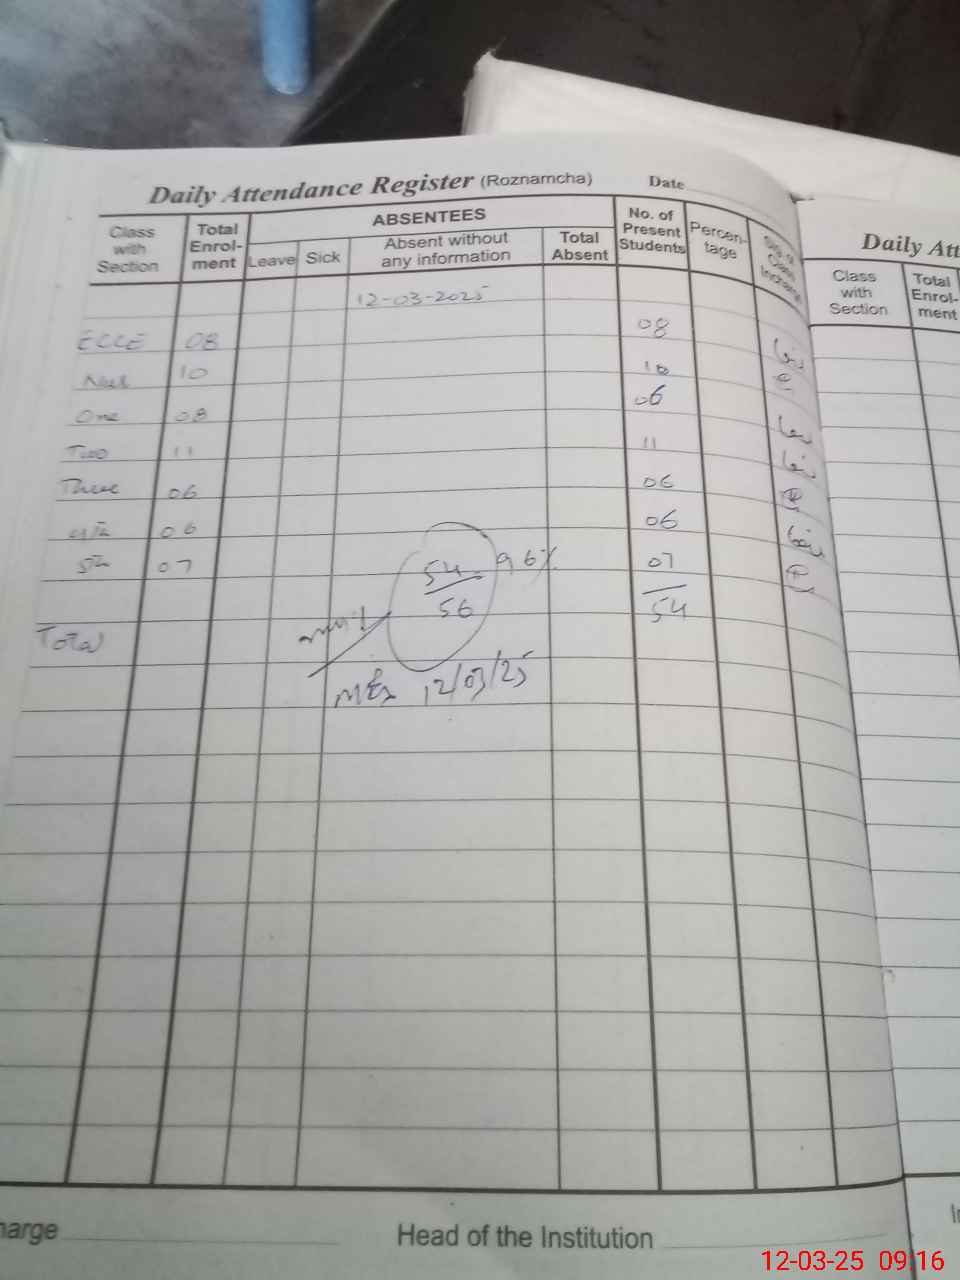 Daily Attendance Register (Roznamcha) Date
Class with Section Total Enrol-ment ABSENTEES Leave Sick Absent without any information Total Absent No. of Present Students Percen-tage Sig. of Class Incharge
12-03-2025
ECCE 08 08
Nur 10 10
One 08 06
Two 11 11
Three 06 06
4th 06 06
5th 07 07
54/56 96%
54
Total
12/03/25
Daily Att
Class with Section Total Enrol-ment
harge Head of the Institution
12-03-25 09:16